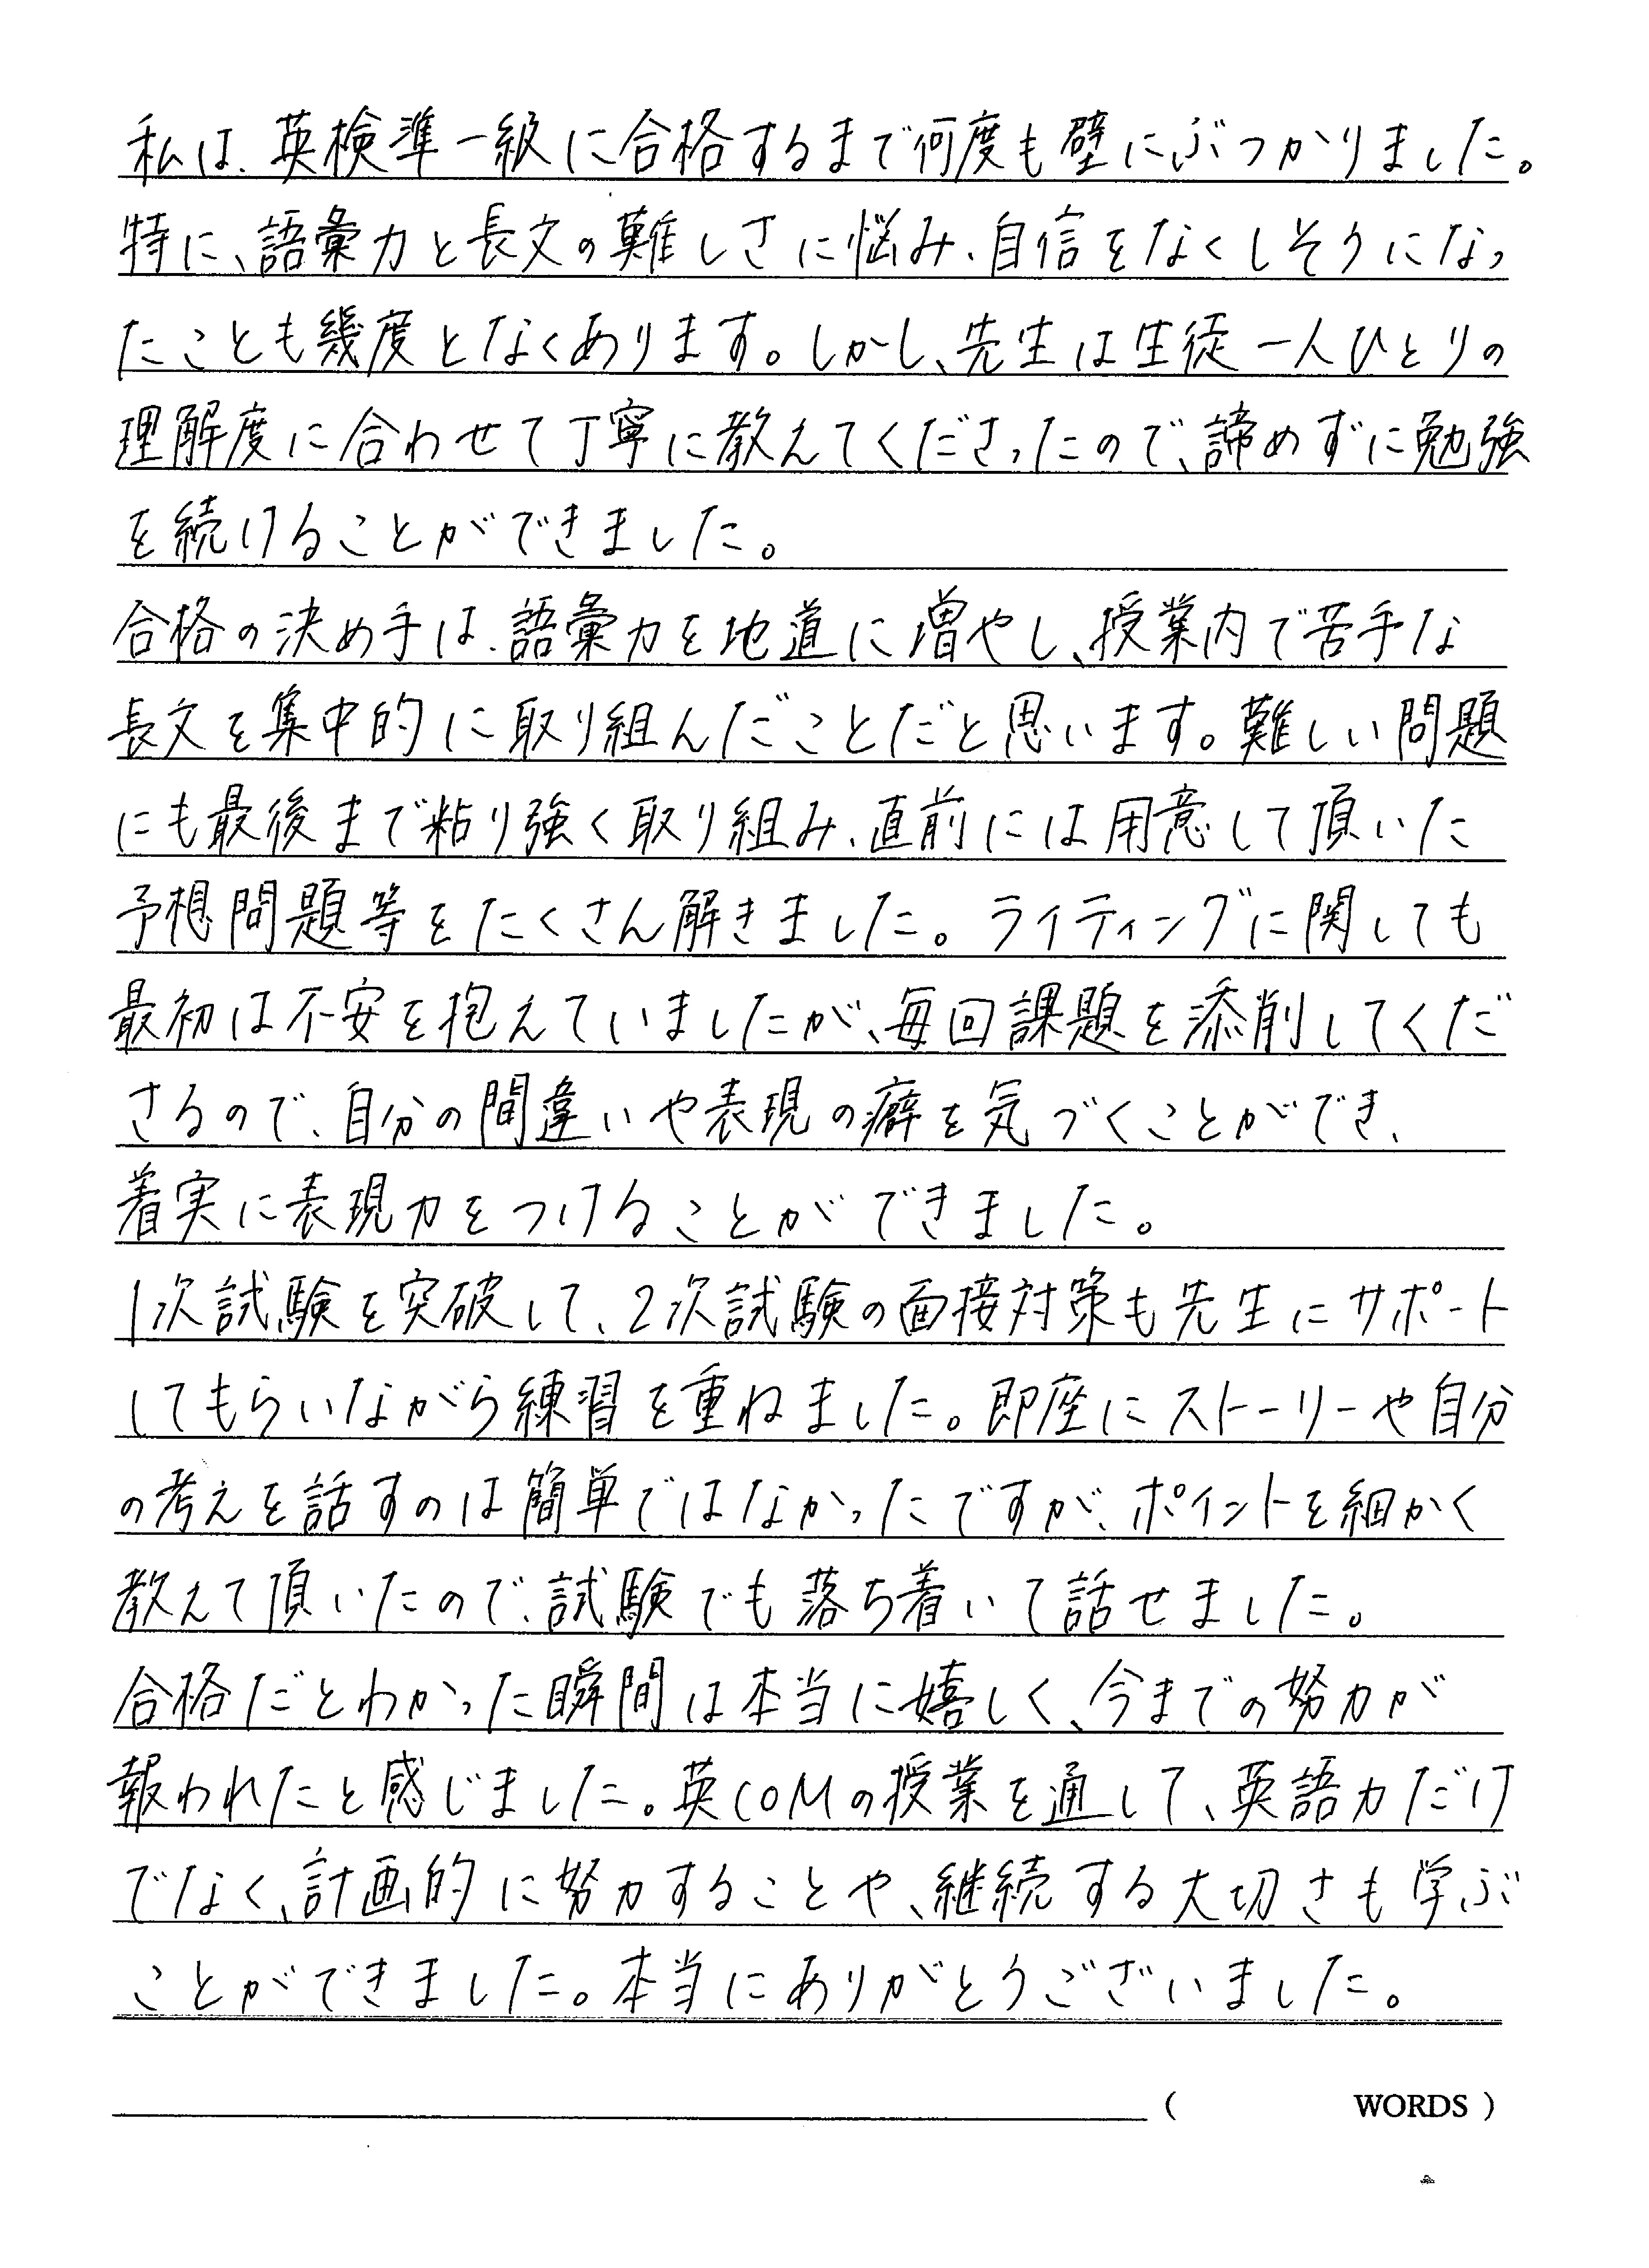 私は、英検準一級に合格するまで何度も壁にぶつかりました。
特に、語彙力と長文の難しさに悩み、自信をなくしそうになっ
たことも幾度となくあります。しかし、先生は生徒一人ひとりの
理解度に合わせて丁寧に教えてくださったので、諦めずに勉強
を続けることができました。
合格の決め手は、語彙力を地道に増やし、授業内で苦手な
長文を集中的に取り組んだことだと思います。難しい問題
にも最後まで粘り強く取り組み、直前には用意して頂いた
予想問題等をたくさん解きました。ライティングに関しても
最初は不安を抱えていましたが、毎回課題を添削してくだ
さるので、自分の間違いや表現の癖を気づくことができ、
着実に表現力をつけることができました。
1次試験を突破して、2次試験の面接対策も先生にサポート
してもらいながら練習を重ねました。即座にストーリーや自分
の考えを話すのは簡単ではなかったですが、ポイントを細かく
教えて頂いたので、試験でも落ち着いて話せました。
合格だとわかった瞬間は本当に嬉しく、今までの努力が
報われたと感じました。英COMの授業を通して、英語力だけ
でなく、計画的に努力することや、継続する大切さも学ぶ
ことができました。本当にありがとうございました。
( WORDS )